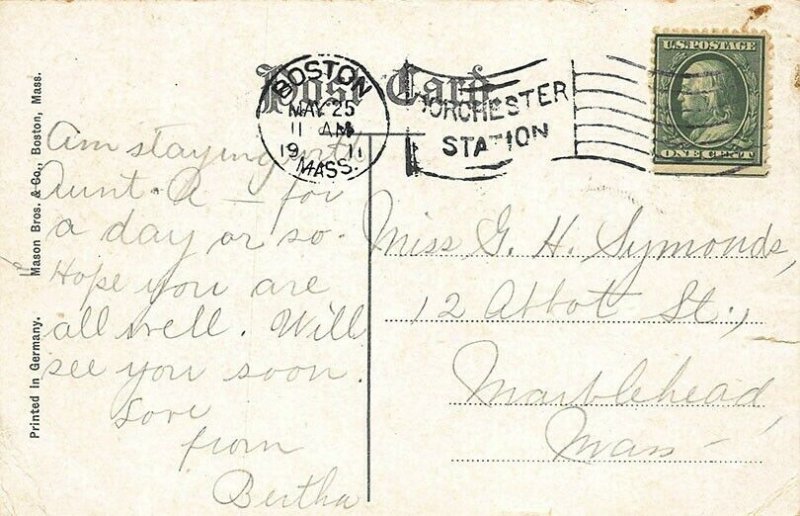 Post Card
BOSTON
MAY 25
11 AM
1911
MASS.
DORCHESTER
STATION
U.S. POSTAGE
ONE CENT
Am staying with
Aunt A — for
a day or so.
Hope you are
all well. Will
see you soon.
Love
from
Bertha
Miss G. H. Symonds,
12 Abbot St.,
Marblehead,
Mass –
Printed in Germany. Mason Bros. & Co., Boston, Mass.